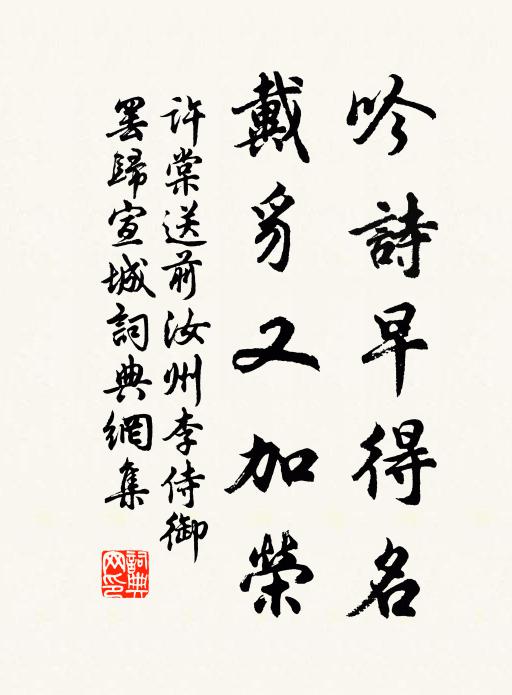 吟詩早得名
戴豸又加榮
許棠送前汝州李侍御
罷歸宣城詞典網集
詞典
网印